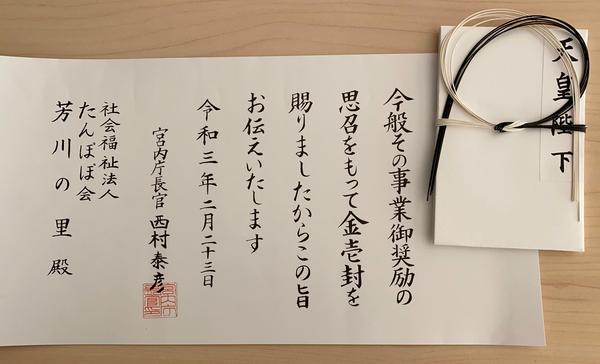 天皇陛下
今般その事業御奨励の
思召をもって金壱封を
賜りましたからこの旨
お伝えいたします
令和三年二月二十三日
宮内庁長官 西村泰彦
社会福祉法人
たんぽぽ会
芳川の里 殿